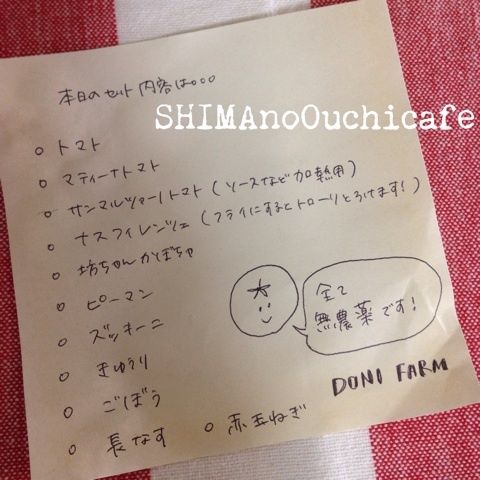 本日のセット内容は。。。
SHIMAnoOuchicafe
○ トマト
○ マティーナトマト
○ サンマルツァーノトマト（ソースなど加熱用）
○ ナスフィレンツェ（フライにするとトローリととろけます！）
○ 坊ちゃんかぼちゃ
○ ピーマン
○ ズッキーニ
○ きゅうり
○ ごぼう
○ 長なす ○ 赤玉ねぎ
全て
無農薬です！
DONI FARM